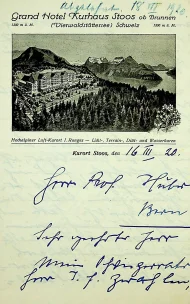 Abgelehnt. 18 III 1920
Grand Hotel Kurhaus Stoos ob Brunnen
1300 m ü. M. (Vierwaldstättersee) Schweiz 1300 m ü. M.
Hochalpiner Luft-Kurort I. Ranges — Licht-, Terrain-, Diät- und Wasserkuren
Kurort Stoos, den 16 III. 20.
Herrn Prof. Huber
Bern
Sehr geehrter Herr
Meine